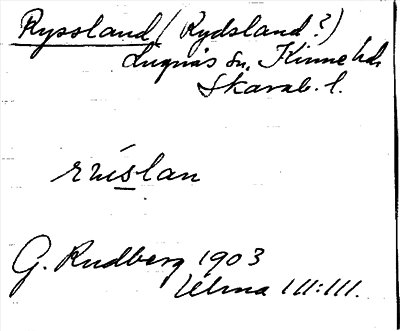 Ryssland (Rydsland?)
Lugnås sn, Kinne hd.
Skarab. l.
G. Rudberg 1903
Ulma 111:111.